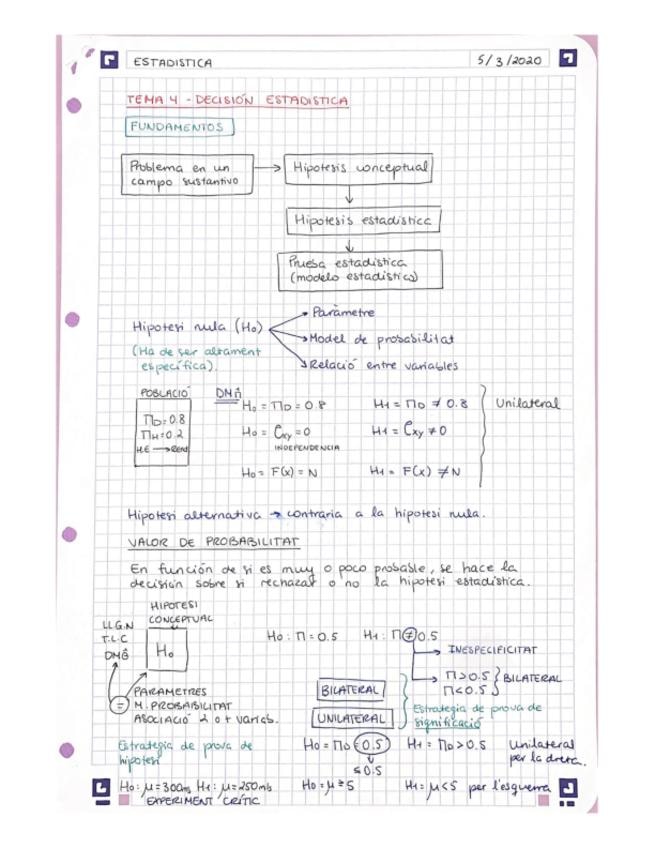 ESTADISTICA 5/3/2020
TEMA 4 - DECISIÓN ESTADISTICA
FUNDAMENTOS
Problema en un
campo sustantivo
Hipotesis conceptual
Hipotesis estadistica
Prueba estadistica
(modelo estadistico)
Hipotesi nula (H0)
(Ha de ser altament
especifica).
Paràmetre
Model de probabilitat
Relació entre variables
POBLACIÓ
ΠD=0.8
ΠH=0.2
H.E → Rend
H0 = ΠD = 0.8 H1 = ΠD ≠ 0.8 Unilateral
H0 = ρxy = 0 H1 = ρxy ≠ 0
INDEPENDENCIA
H0 = F(x) = N H1 = F(x) ≠ N
Hipotesi alternativa → contraria a la hipotesi nula.
VALOR DE PROBABILITAT
En función de si es muy o poco probable, se hace la
decisión sobre si rechazar o no la hipotesi estadistica.
HIPOTESI
CONCEPTUAL
LL.G.N
T.L.C
H0
H0 : Π = 0.5 H1 : Π ≠ 0.5
INESPECIFICITAT
Π > 0.5
Π < 0.5
BILATERAL
=
PARAMETRES
M. PROBABILITAT
ASOCIACIÓ 2 o + variab.
BILATERAL
UNILATERAL
Estrategia de prova de
significació
Estrategia de prova de
hipotesi
H0 = ΠD = 0.5 H1 = ΠD > 0.5 Unilateral
per la dreta.
≤ 0.5
H0 : μ = 300ms H1 : μ = 250ms H0 = μ ≥ 5 H1 = μ < 5 per l'esquerra
EXPERIMENT CRÍTIC